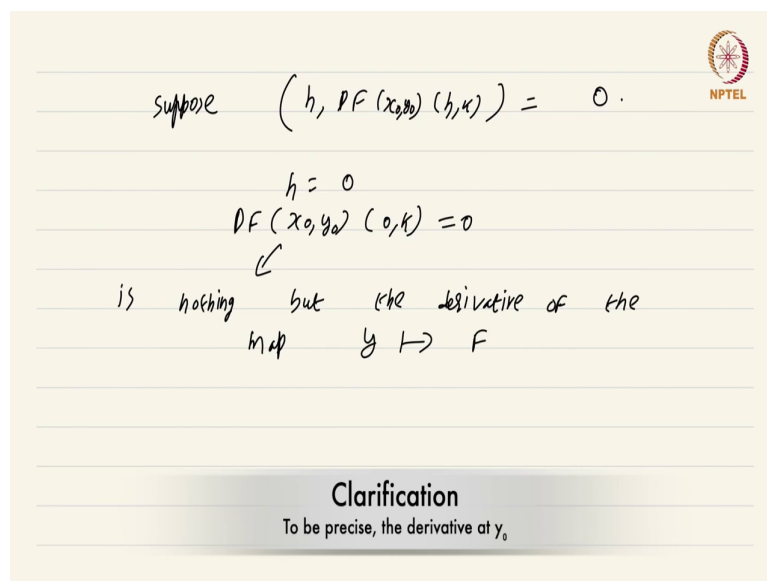 NPTEL
suppose (h, DF(x₀,y₀) (h,k)) = 0.
h = 0
DF(x₀,y₀) (0,k) = 0
is nothing but the derivative of the
map y ↦ F
Clarification
To be precise, the derivative at y₀